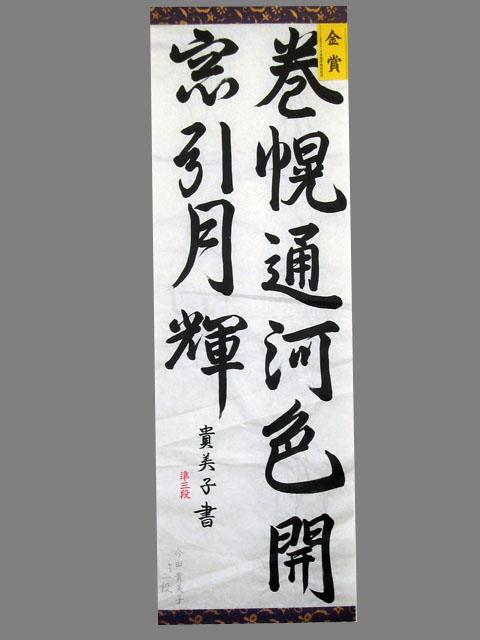 金賞
巻幌通河色開
窓引月輝
貴美子書
準三段
今田貴美子